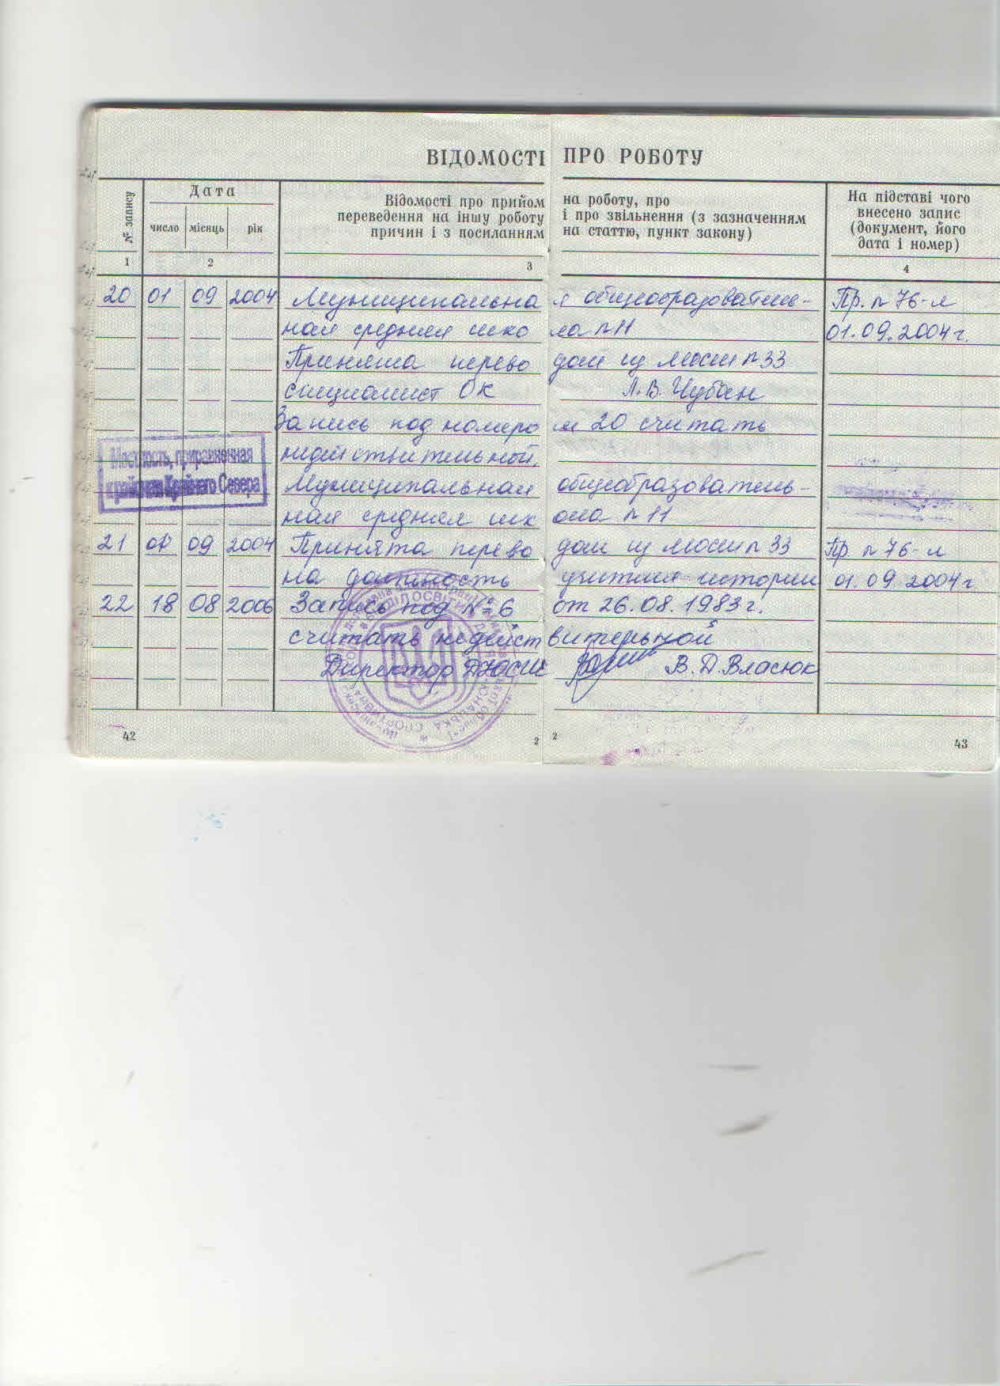 ВІДОМОСТІ ПРО РОБОТУ
№ запису
Дата
число місяць рік
Відомості про прийом на роботу, про
переведення на іншу роботу і про звільнення (з зазначенням
причин і з посиланням на статтю, пункт закону)
На підставі чого
внесено запис
(документ, його
дата і номер)
1 2 3 4
20 01 09 2004 Муниципальная общеобразователь- Пр. n 76-л
ная средняя школа n 11 01.09.2004 г.
Принята переводом из МОСШ n 33
специалист ОК Л.В. Чубан
Запись под номером 20 считать
недействительной.
Местность, приравненная
к районам Крайнего Севера
Муниципальная общеобразователь-
ная средняя школа n 11
21 01 09 2004 Принята переводом из МОСШ n 33 Пр. n 76-л
на должность учителя истории 01.09.2004 г
22 18 08 2006 Запись под № 6 от 26.08.1983 г.
считать недействительной
Директор ДЮСШ В.Д. Власюк
42 2 2 43